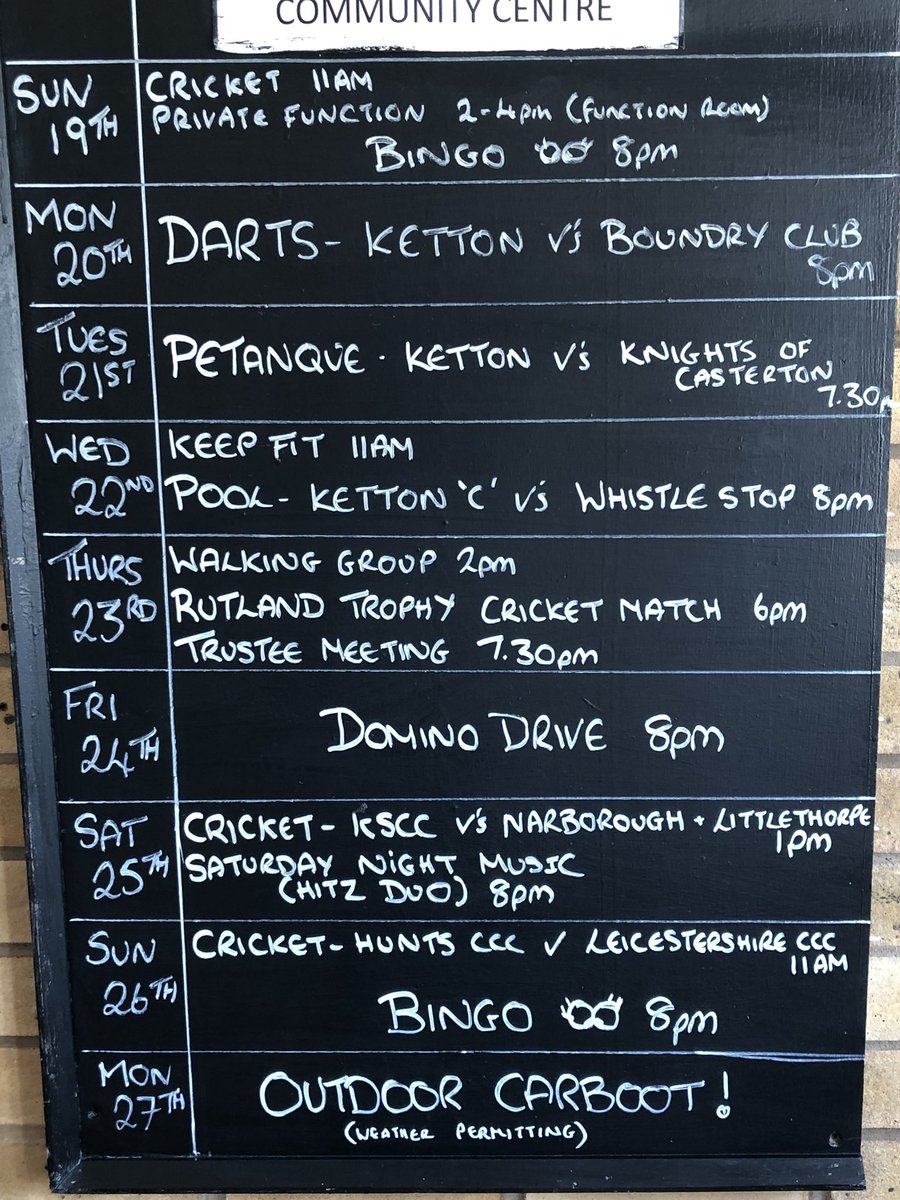 COMMUNITY CENTRE
SUN 19TH
CRICKET 11AM
PRIVATE FUNCTION 2-4pm (FUNCTION ROOM)
BINGO 8pm
MON 20TH
DARTS- KETTON V's BOUNDRY CLUB
8pm
TUES 21ST
PETANQUE - KETTON V's KNIGHTS OF
CASTERTON
7.30p
WED 22ND
KEEP FIT 11AM
POOL- KETTON 'C' V's WHISTLE STOP 8pm
THURS 23RD
WALKING GROUP 2pm
RUTLAND TROPHY CRICKET MATCH 6pm
TRUSTEE MEETING 7.30pm
FRI 24TH
DOMINO DRIVE 8pm
SAT 25TH
CRICKET- KSCC V's NARBOROUGH + LITTLETHORPE
1pm
SATURDAY NIGHT MUSIC
(HITZ DUO) 8pm
SUN 26TH
CRICKET- HUNTS CCC V LEICESTERSHIRE CCC
11AM
BINGO 8pm
MON 27TH
OUTDOOR CARBOOT!
(WEATHER PERMITTING)